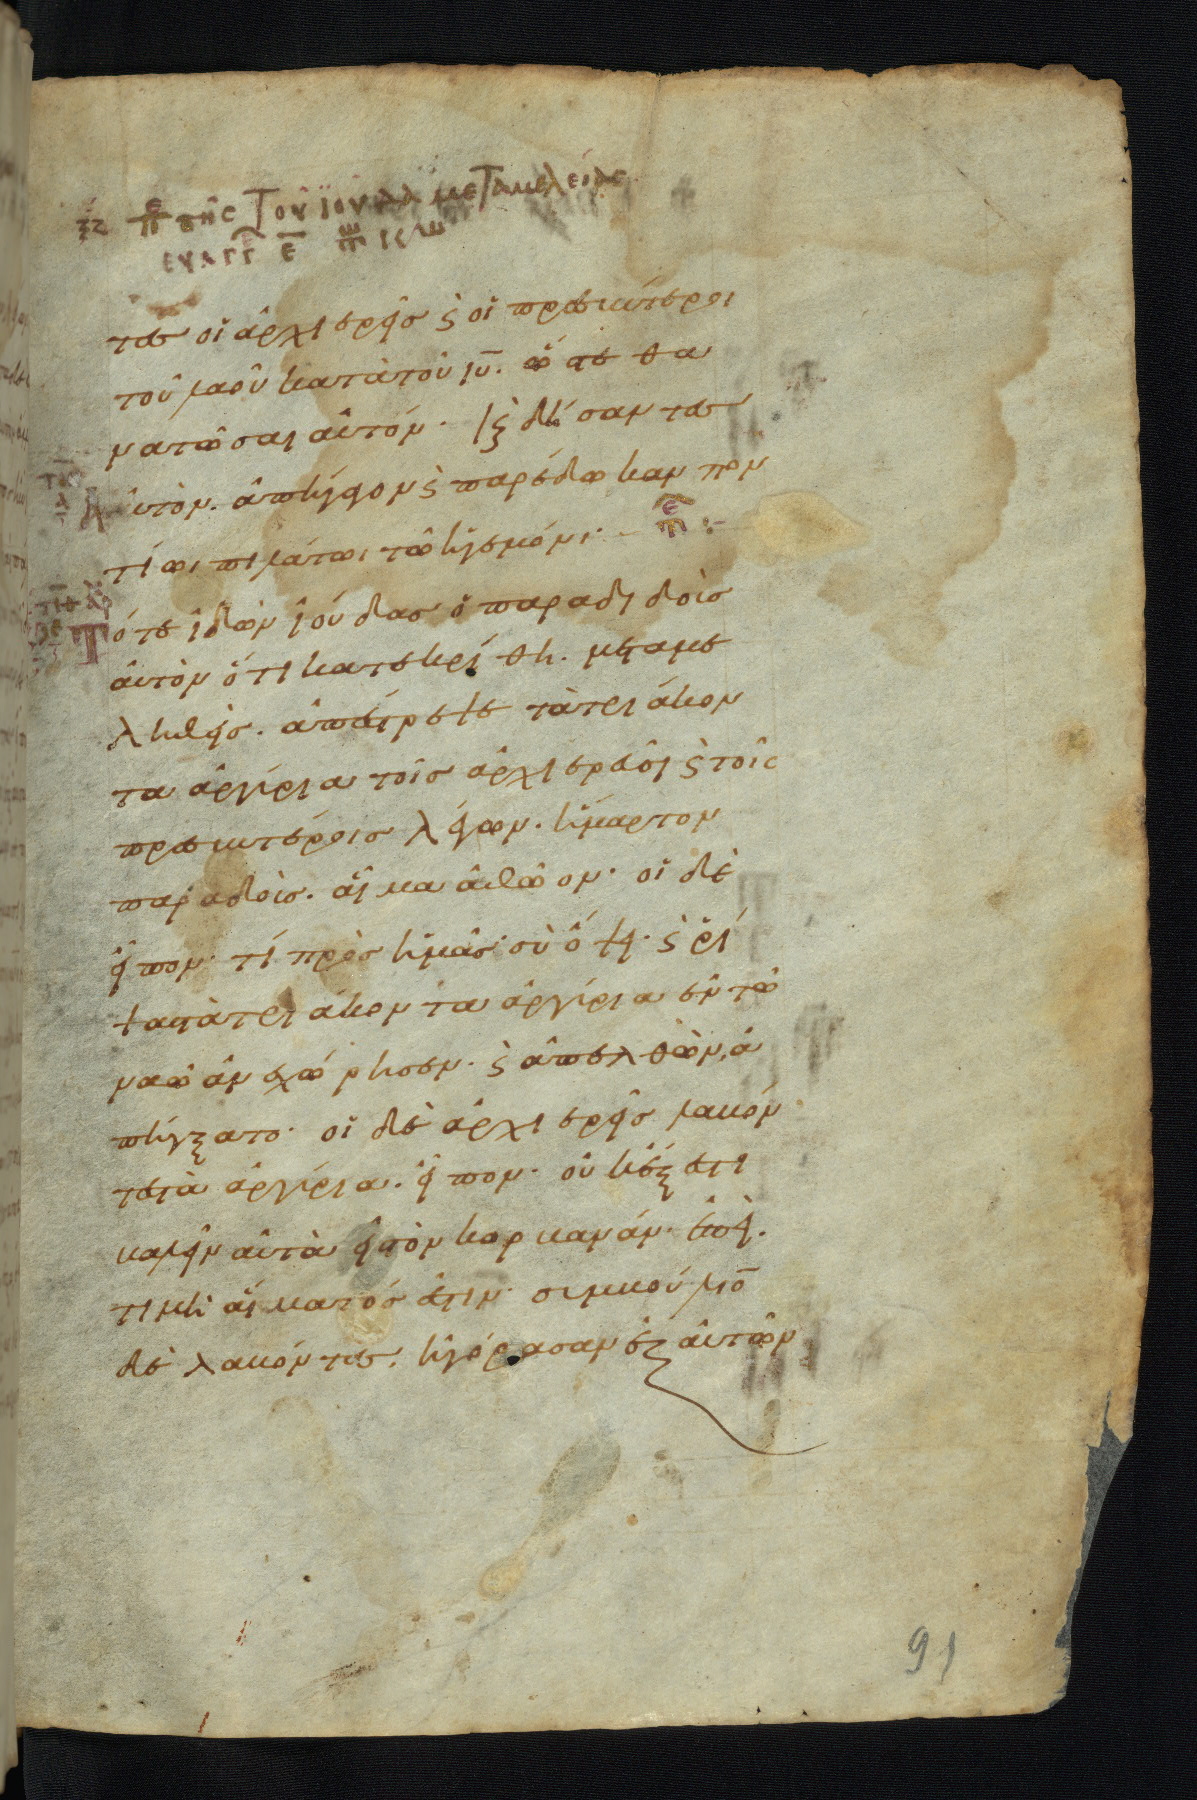 ξζ περὶ τῆς τοῦ ἰούδα μεταμελείας
ευαγγ ε
τες οἱ ἀρχιερεῖς ϛ οἱ πρεσβύτεροι
τοῦ λαοῦ κατὰ τοῦ ιυ. ὥστε θα
νατῶσαι αὐτόν· ϗ δήσαντες
αὐτὸν. ἀπήγαγον ϛ παρέδωκαν πον
τίωι πιλάτωι τῶ ἡγεμόνι·
τότε ἰδὼν ἰούδας ὁ παραδιδοὺς
αὐτὸν ὅτι κατεκρίθη. μεταμε
ληθεὶς. ἀπέστρεψε τὰ τριάκον
τα ἀργύρια τοῖς ἀρχιερεῦσι ϛ τοῖς
πρεσβυτέροις λέγων. ἥμαρτον
παραδοὺς. αἷμα ἀθῶον· οἱ δὲ
εἶπον· τί πρὸς ἡμᾶς· σὺ ὄψει· ϛ ῥί
ψας τὰ τριάκοντα ἀργύρια ἐν τῶ
ναῶ ἀνεχώρησεν· ϛ ἀπελθὼν, ἀ
πήγξατο· οἱ δὲ ἀρχιερεῖς λαβόν
τες τὰ ἀργύρια. εἶπον· οὐκ ἔξεστι
βαλεῖν αὐτὰ εἰς τὸν κορβανάν· ἐπεὶ.
τιμὴ αἵματός ἐστιν· συμβούλιον
δὲ λαβόντες. ἠγόρασαν ἐξ αὐτῶν
91